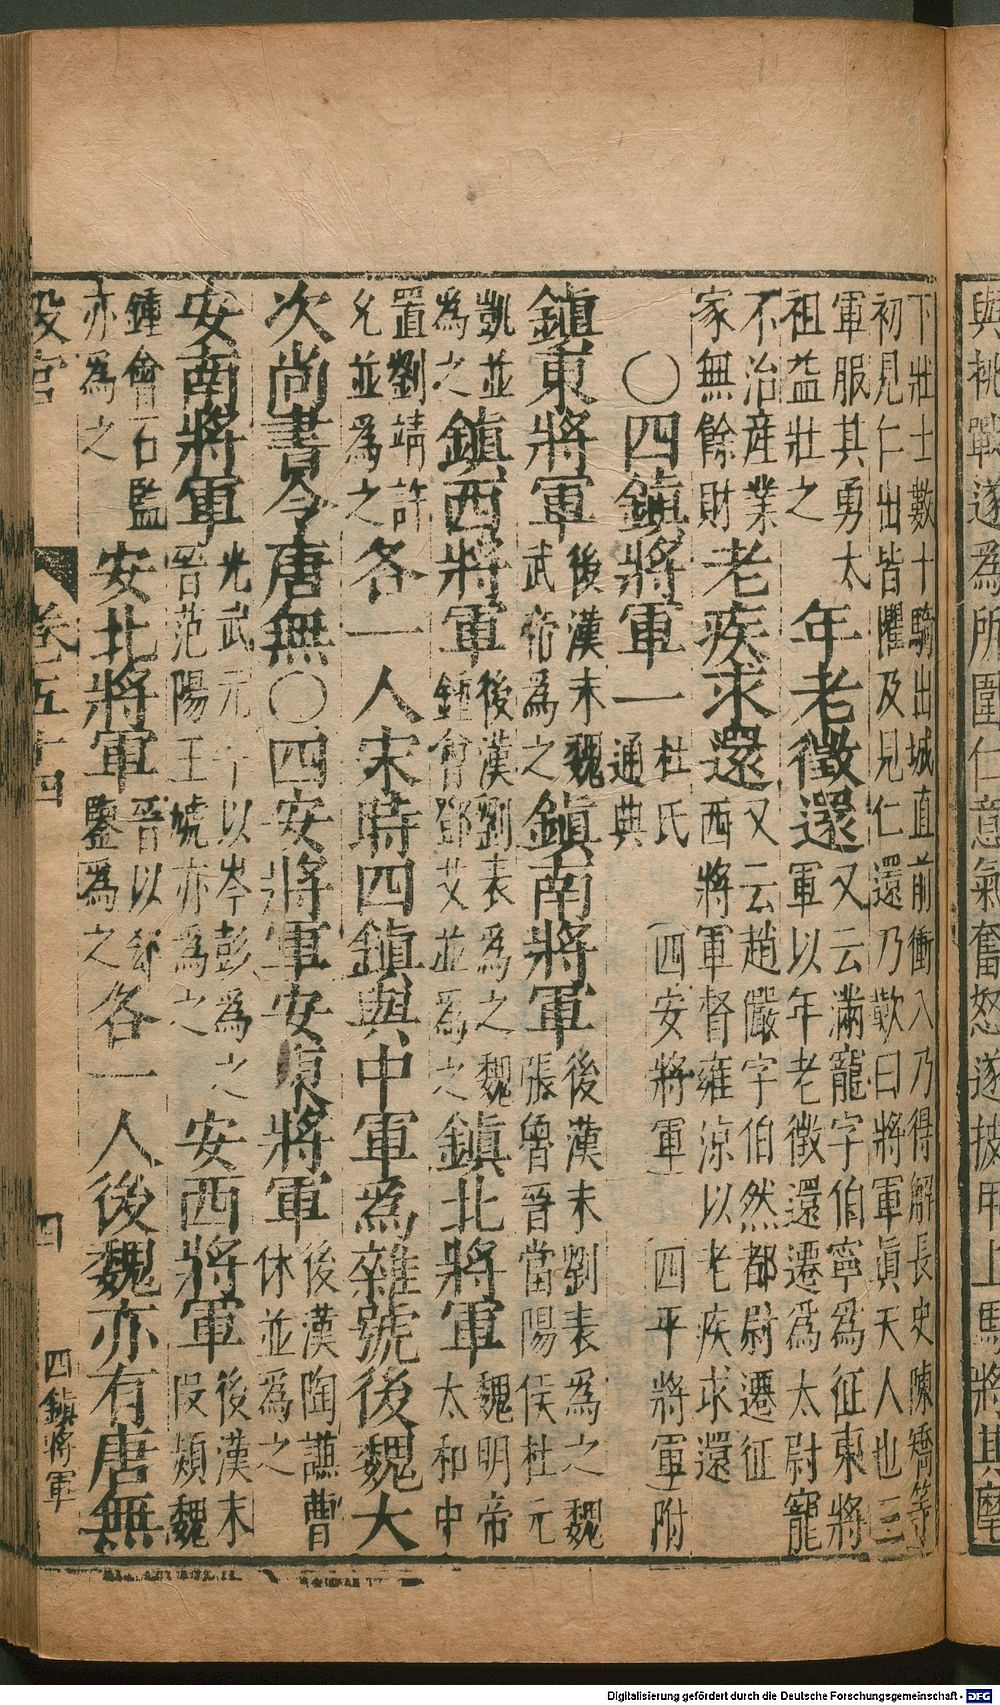 與挑戰遂為所圍仁意氣奮怒遂披甲上馬將其麾
下壯士數十騎出城直前衝入乃得解長史陳矯等
初見仁出皆懼及見仁還乃歎曰將軍眞天人也三
軍服其勇太
祖益壯之
年老徵還
又云滿寵字伯寧為征東將
軍以年老徵還遷為太尉寵
不治産業
家無餘財
老疾求還
又云趙儼字伯然都尉遷征
西將軍督雍涼以老疾求還
〇四鎮將軍一
杜氏
通典
四安將軍 四平將軍附
鎮東將軍
後漢末魏
武帝為之
鎮南將軍
後漢末劉表為之魏
張魯晉當陽侯杜元
凱並
為之
鎮西將軍
後漢劉表為之魏
鍾會鄧艾並為之
鎮北將軍
魏明帝
太和中
置劉靖許
允並為之
各一人宋時四鎮與中軍為雜號後魏大
次尚書令唐無〇四安將軍安東將軍
後漢陶謙曹
休並為之
安南將軍
光武元年以岑彭為之
晉范陽王虓亦為之
安西將軍
後漢末
段熲魏
鍾會石鑒
亦為之
安北將軍
晉以郄
鑒為之
各一人後魏亦有唐無
設官
卷五十四
四
四鎮將軍